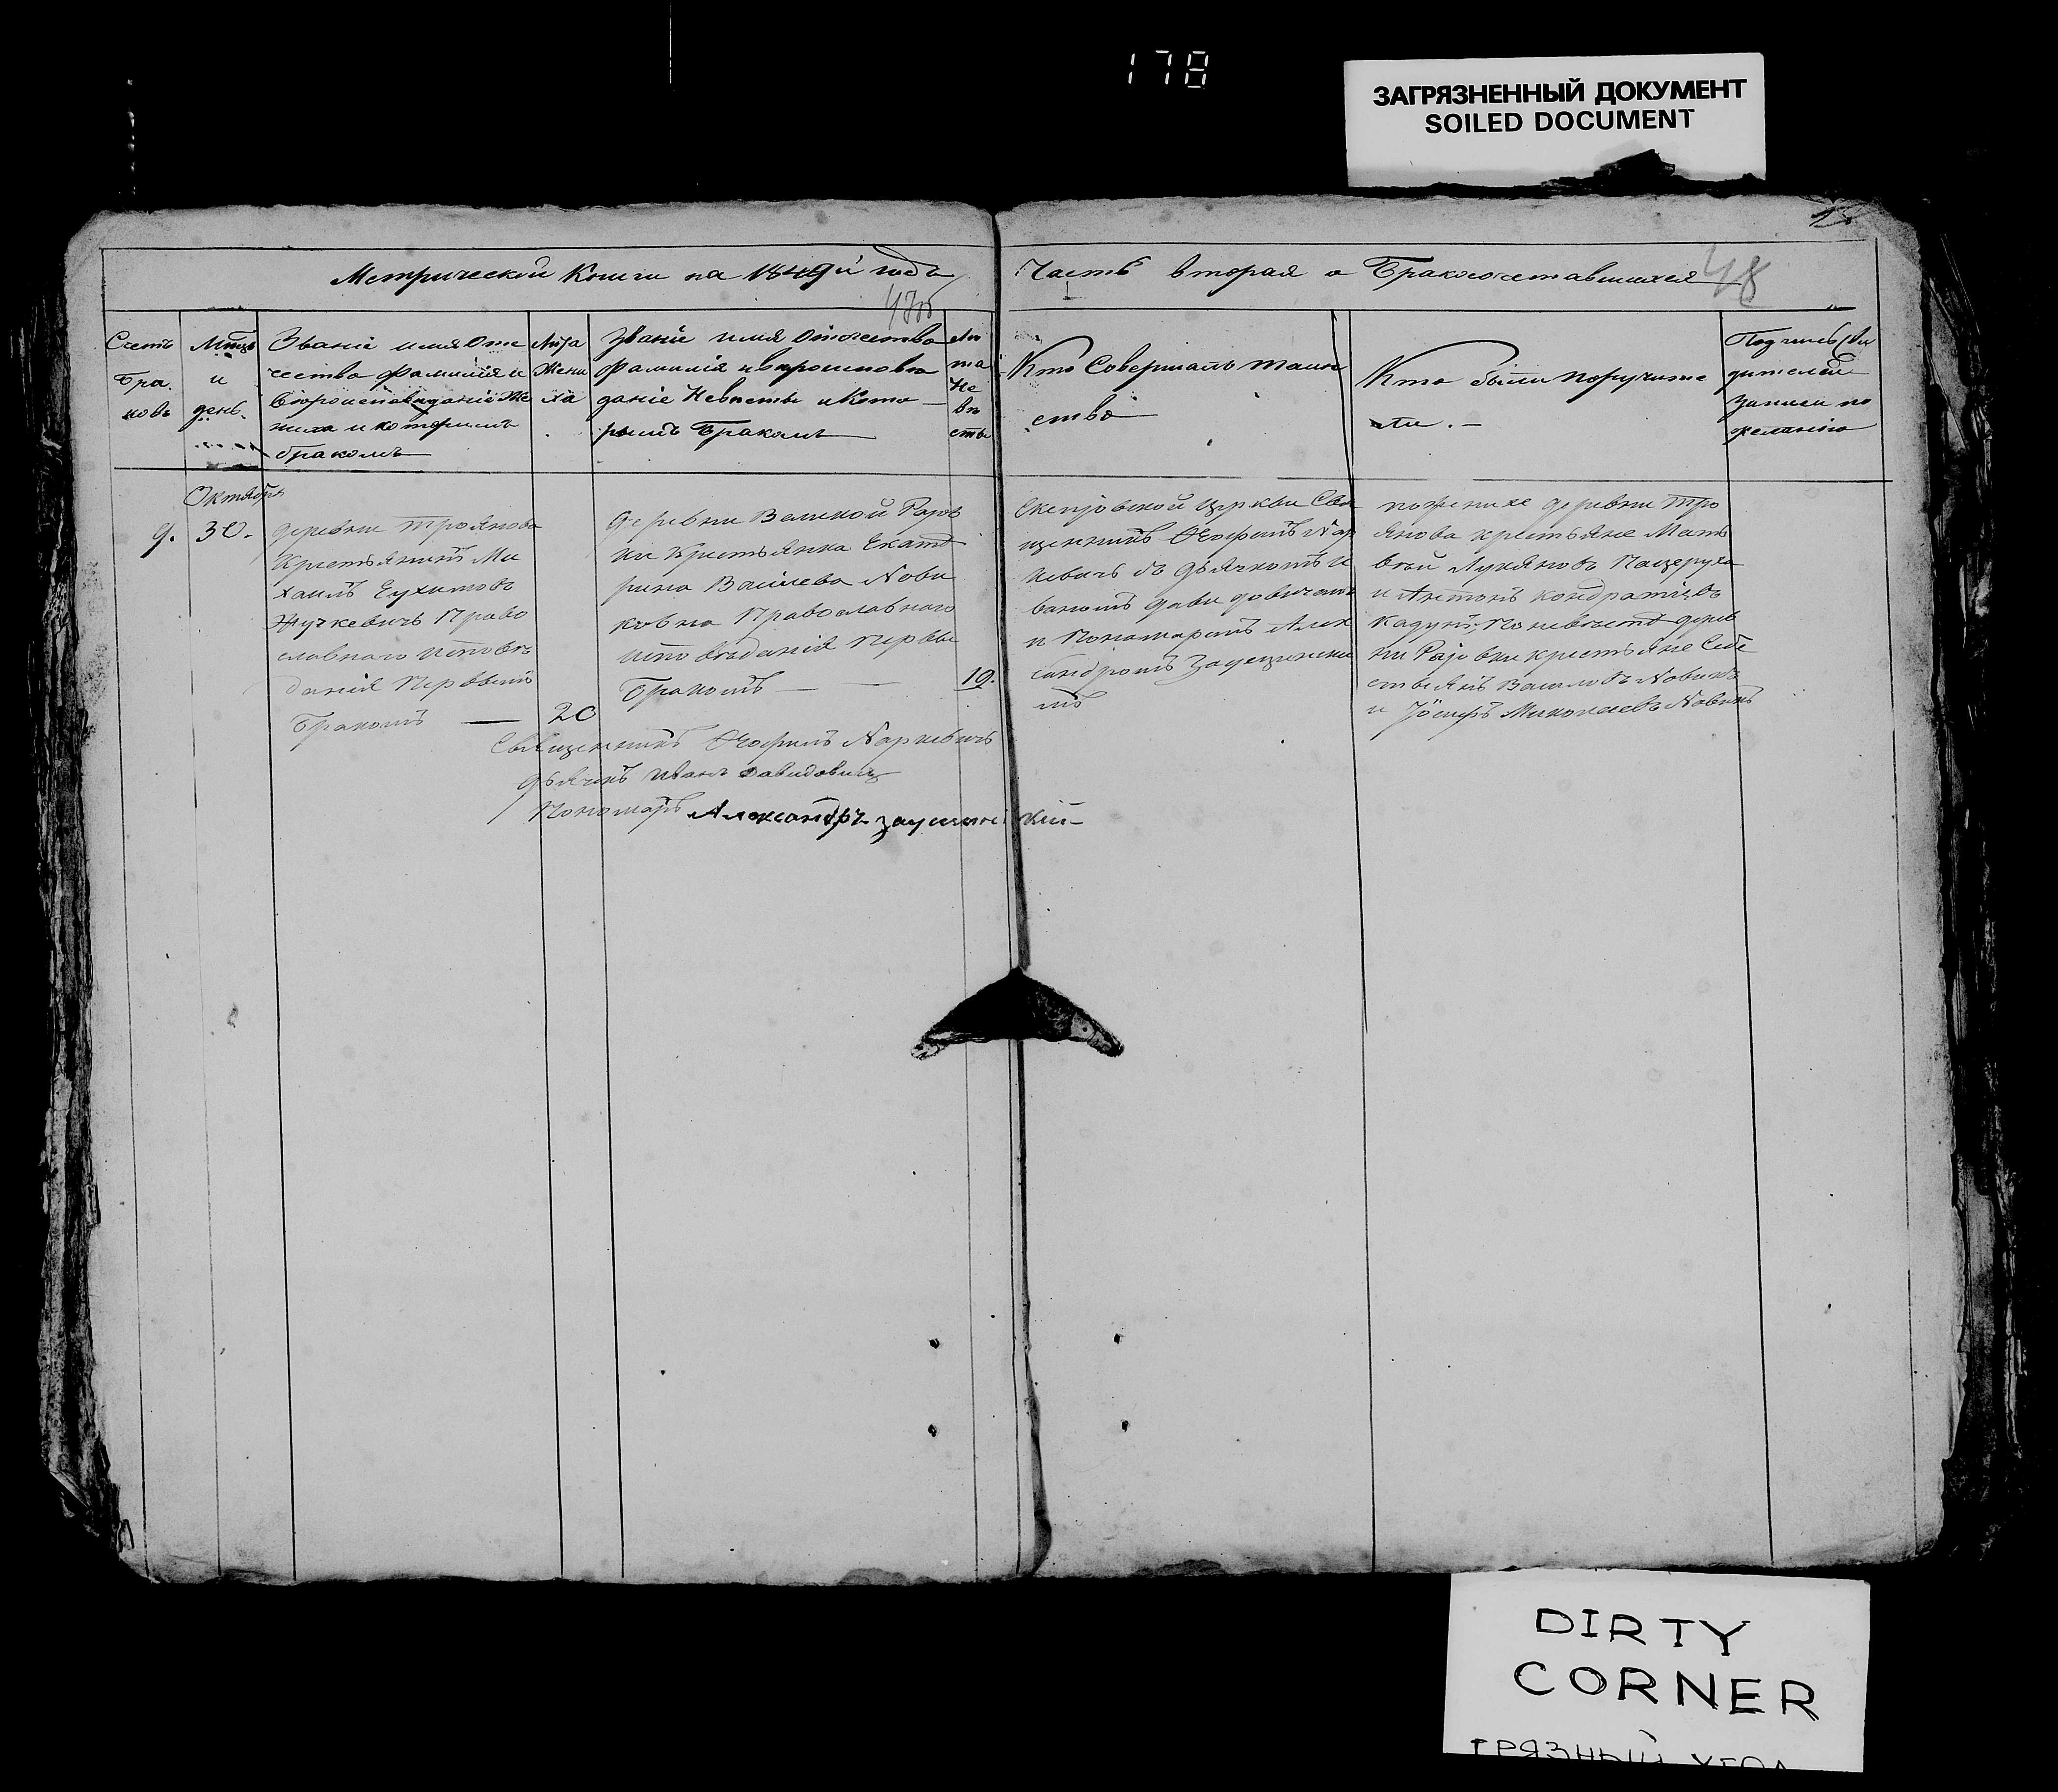 178
ЗАГРЯЗНЕННЫЙ ДОКУМЕНТ
SOILED DOCUMENT
Метрической Книги на 1849й годъ
Часть вторая о Бракосочетавшихся
48
Счетъ
Бра
ковъ
Мѣцъ
и
день.
Званіе имя Оте
чество фамилія и
Вѣроисповѣданіе Же
ниха и которымъ
бракомъ
Лѣта
Жени
ха
Званіе имя Отчество
фамилія и вѣроисповѣ
даніе Невѣсты и Кото
рымъ Бракомъ
Лѣ
та
Не
вѣ
сты
Кто Совершалъ Таин
ство
Кто были поручите
ли.
дителей
записи по
желанію
Октября
9.
30.
деревни Троянова
Крестьянинъ Ми
хаилъ
Жучкевичъ Право
славнаго исповѣ
данія первымъ
бракомъ
20
деревни Великой Раёв
ки Крестьянка Екате
рина Васильева Нови
ковна Православнаго
исповѣданія первы
бракомъ
19.
Церкви Свя
щенникъ
съ Дьячкомъ И
ваномъ Давидовичемъ
и Пономаремъ Алек
сандромъ
мъ
по женихе деревни Тро
янова крестьяне Матъ
вей Лукяновъ
и Антонъ Кондратіевъ
по невѣсте дерев
ни Раёвки крестьяне Себе
стьянъ Василевъ Новикъ
и Іосифъ Миколаевъ Новикъ
Священникъ
Дьячекъ Иванъ Давидовичъ
Пономарь Александръ
DIRTY
CORNER
ГРЯЗНЫЙ УГОЛ